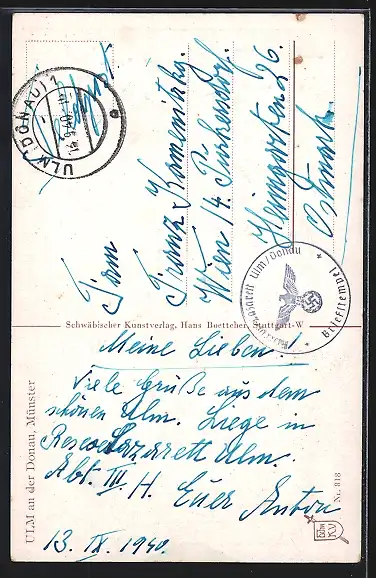 Feldpost
ULM (DONAU) 1
Fam
Franz Kamenitzky.
Wien 14. Purkersdorf.
Heimgarten 226.
Ostmark
Reservelazarett Ulm/Donau
Briefstempel
Schwäbischer Kunstverlag, Hans Boettcher, Stuttgart-W
Meine Lieben!
Viele Grüße aus dem
schönen Ulm. Liege in
Reservelazarett Ulm.
Abt. III H.
Euer Anton
13. IX. 1940.
ULM an der Donau, Münster
Nr. 818